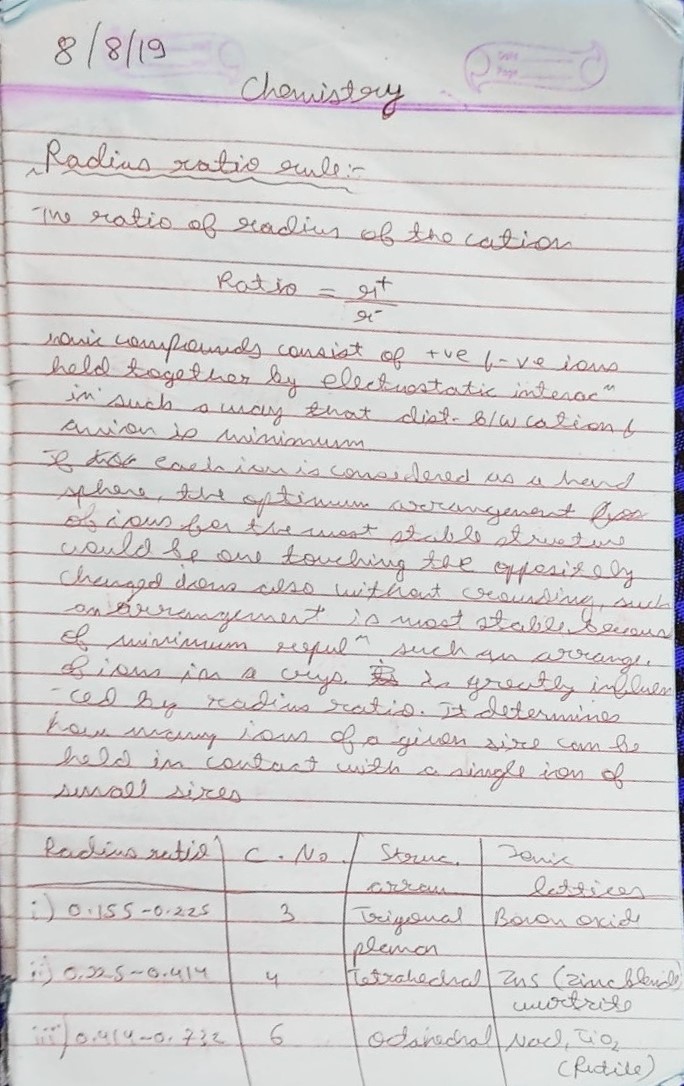 8/8/19
Date
Page
Chemistry
Radius ratio rule:-
The ratio of radius of the cation
Ratio = r+
r-
ionic compounds consist of +ve & -ve ions
held together by electrostatic interacn
in such a way that dist- b/w cation &
anion is minimum
If each ion is considered as a hard
sphere, the optimum arrangement
of ions for the most stable structure
would be one touching the oppositely
charged ions also without crowding, such
an arrangement is most stable because
of minimum repuln such an arrange.
of ions in a crys. is greatly influen
-ced by radius ratio. It determines
how many ions of a given size can be
held in contact with a single ion of
small sizes
Radius ratio C. No. Struc. Ionic
arran lattices
i) 0.155-0.225 3 Trigonal Boron oxide
planar
ii) 0.225-0.414 4 Tetrahedral ZnS (zinc blende)
wurtzite
iii) 0.414-0.732 6 Octahedral NaCl, TiO2
(Rutile)